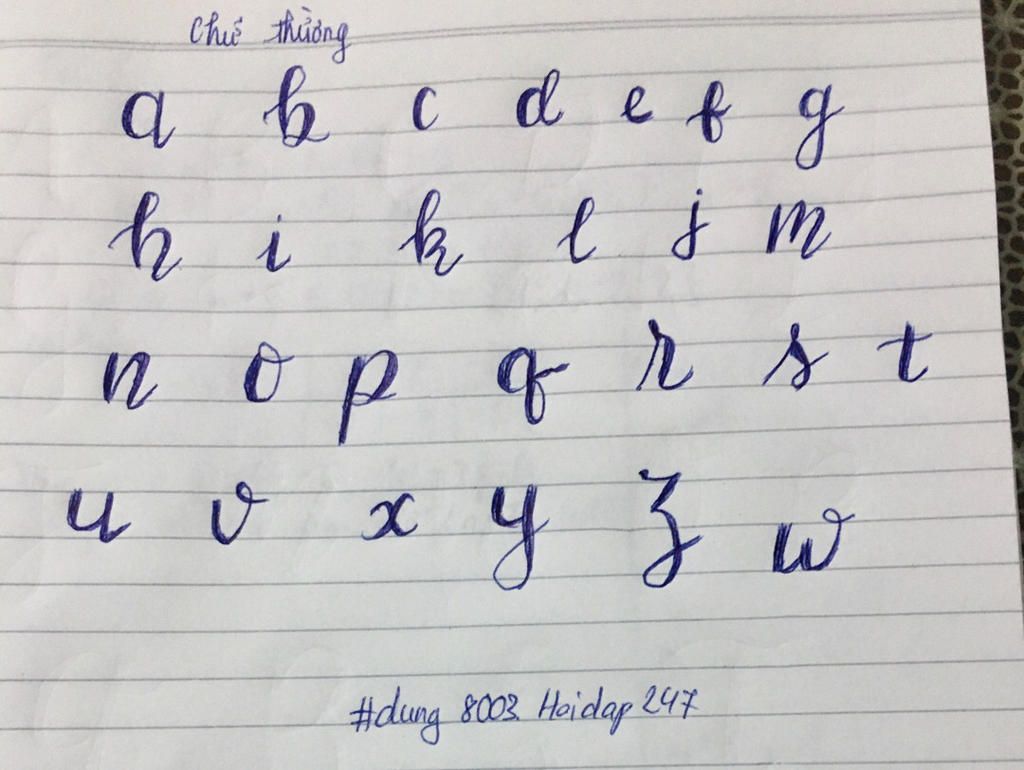 Chữ thường
a b c d e f g
h i k l j m
n o p q r s t
u v x y z w
#dung 8003 Hoidap 247